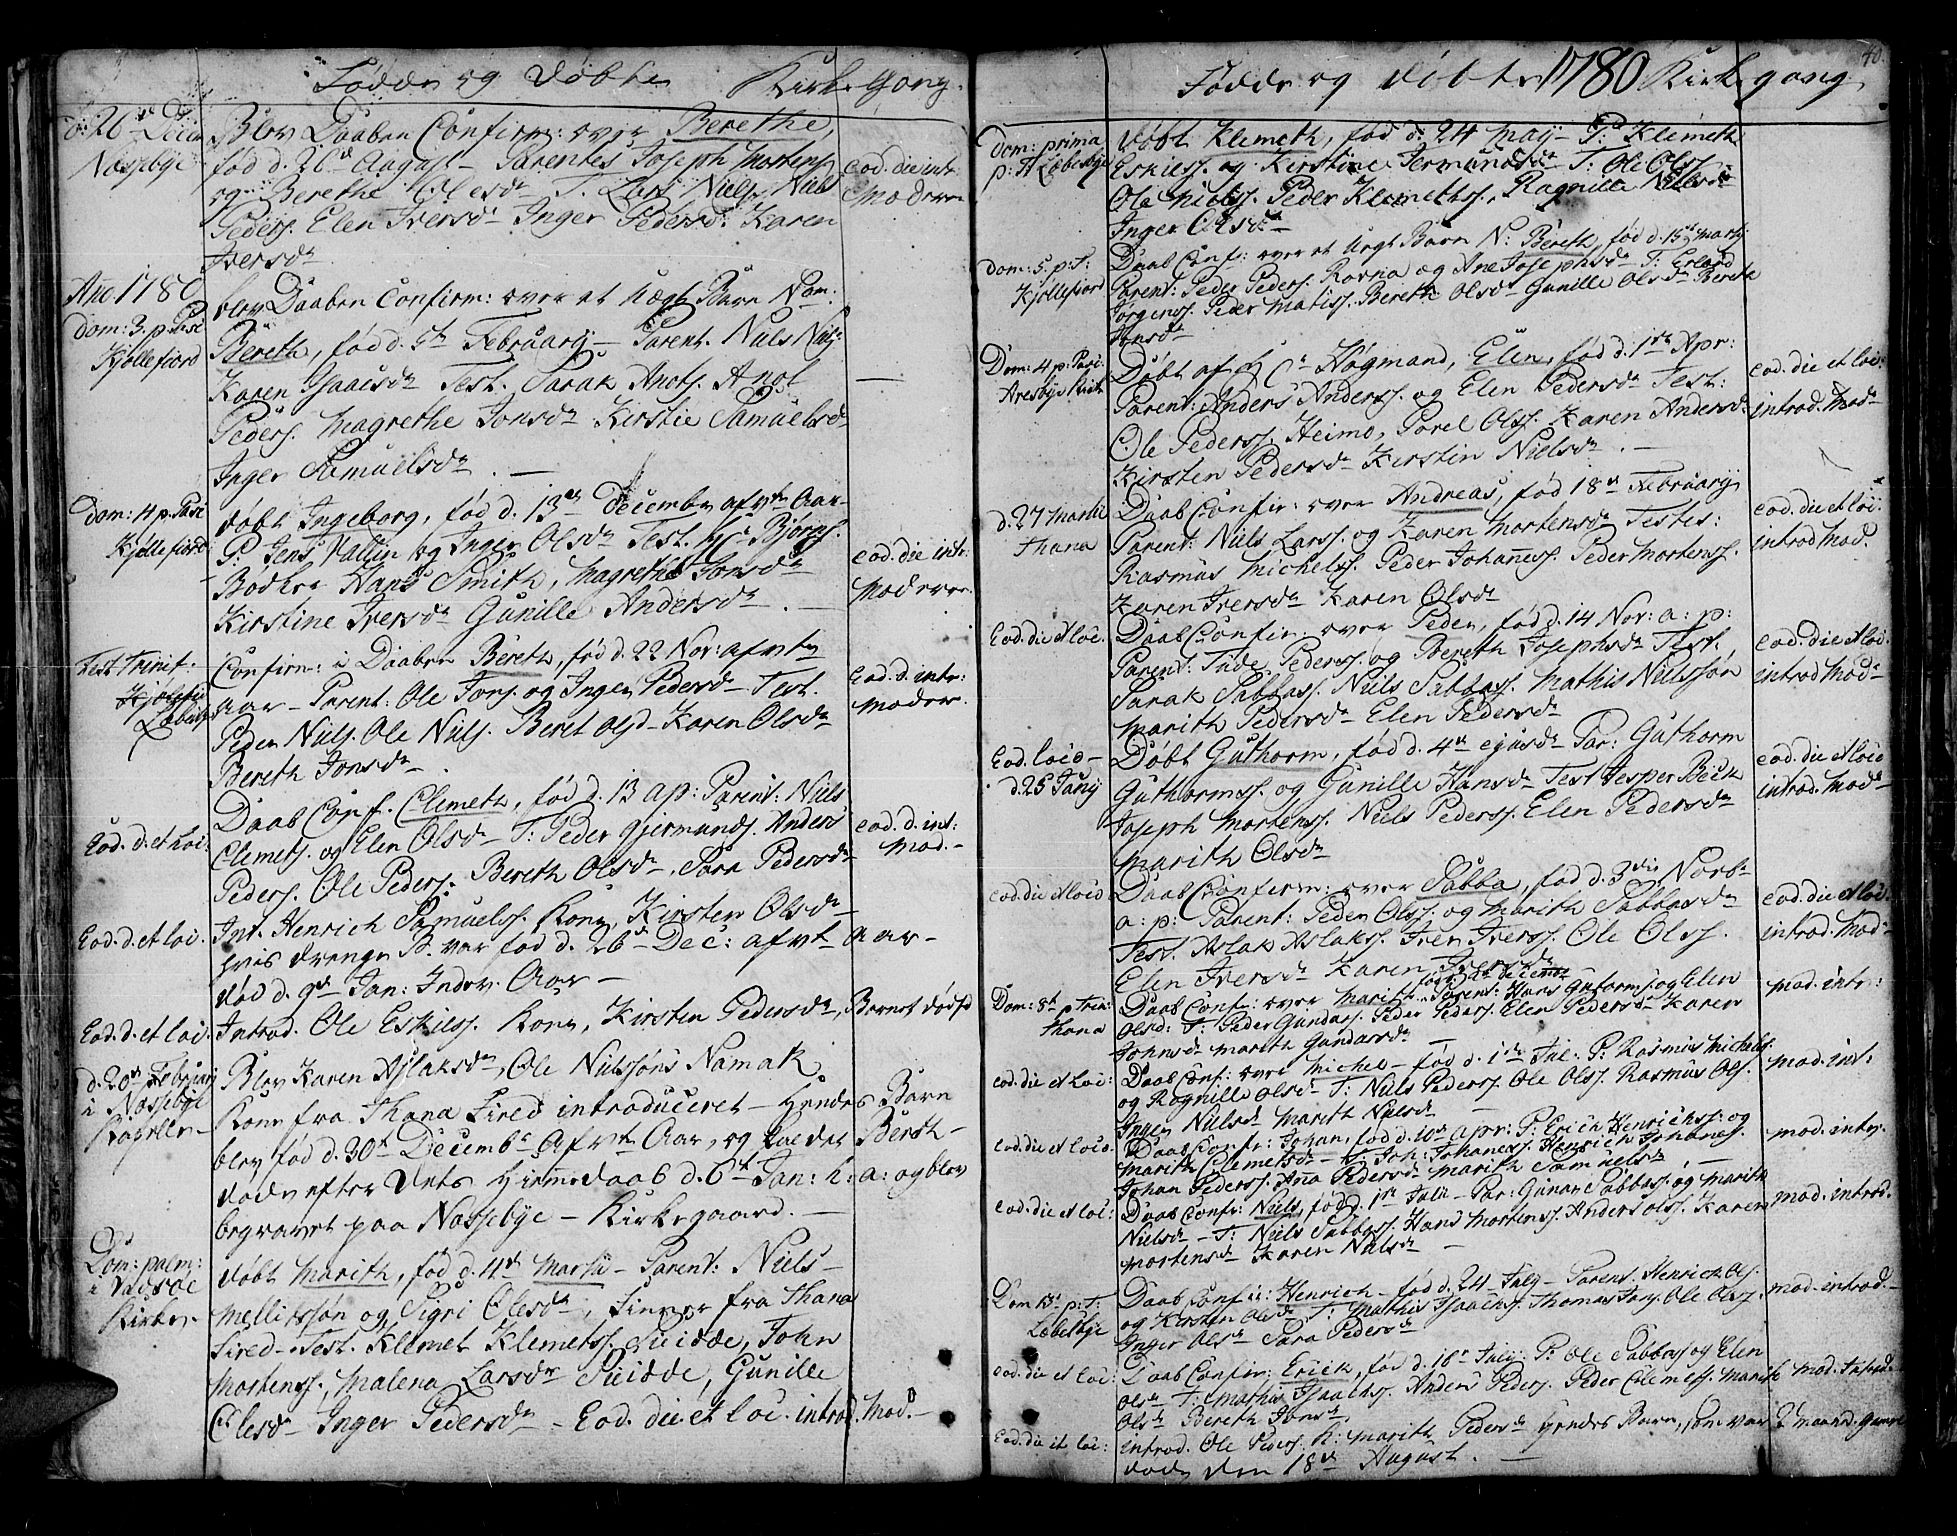 Fødde og Døbte Kirke Gang.
d: 26de Decem
Næssebye
Blev Daaben Confirm: over Berethe,
fød d. 26de August – Parentes Joseph Mortens.
og Berethe Olesdr T. Lars Niels. Niels
Peders. Elen Iversdr Inger Pedersdr Karen
Iversdr
eod. die int.
Moderen
Ano 1780
dom: 3. p. Pasc
Kjøllefiord
blev Daaben Confirm: over et Uægt Barn Nom:
Bereth, fød d. 5t February – Parent. Niels Niels.
Karen Isaacsdr Test. Sarak Anots. Anot
Peders. Magrethe Jonsdr Kirstie Samuelsdr
Inger Samuelsdr. –
dom: 4 p. Pasc
Kjøllefiord
døbt Ingeborg, fød d. 13de December afvte Aar –
P: Jens Vallin og Inger Olsdr Test. Hr Bjørns.
Bødker Hans Smith, Magrethe Jonsdr
Kirstine Iversdr Gunille Andersdr. –
eod. die intr:
Moderen.
Fest Trinit.
Lebesbye
Confirm: i Daaben Bereth, fød d. 22 Nov: afvte
Aar – Parent: Ole Jons. og Inger Pedersdr – Test.
Peder Niels. Ole Niels. Beret Olsd – Karen Olsdr
Bereth Jonsdr.
Eod. d. intr:
Moder.
Eod. d. et loc.
Daab Conf. Clemeth, fød d. 13 Ap: Parent: Niels
Clemets. og Elen Olsdr T: Peder Gjermunds. Anders
Peders. Ole Peders: Bereth Olsdr. Sara Pedersdr
eod. d. int:
Mod. –
Eod. d. et loc.
Int. Henrich Samuelss. Kone, Kirsten Olsdr –
hvis drenge B. var fød d. 26de Dec: afvt Aar –
død d. 9de Jan: Indev. Aar –
Eod. d. et loc.
Introd. Ole Eskilss. Kone, Kirsten Pedersdr, Barnet dødfd
d. 20de Februarj
i Næssebye
Kapelle –
Blev Karen Aslaksdr, Ole Nielssøns Namak
Kone fra Thana Fired introduceret – Hendes Barn
blev fød d. 30te Decembr Afvt Aar, og kaldet Bereth –
døde efter dets Hiemedaab d. 6te Jan: h: a: og blev
begravet paa Næssebye – Kirkegaard. –
Dom: palm:
i Vadsøe
Kirke. –
døbt Marith, fød d. 4de Martii – Parent: Niels –
Mellitssøn og Sigri Olesdr, Finner fra Thana
Fired – Test. Klemet Klemetss. Suidde, John
Mortenss. Malena Larsdr Suidde, Gunille
Olesdr – Inger Pedersdr – Eod. die et loc. introd. Mod. –
Fødde og døbte 1780 Kirkegang
40.
dom: prima
p: T. Lebesbye
døbt Klemeth, fød d. 24 May – P: Klemeth
Eskiess. og Kirstine Jermundsdr T: Ole Olss.
Ole Nielss. Peder Klemethss. Ragnille Nielsdr
Inger Olsdr
dom: 5. p. T:
Kjøllefiord
Daab Conf: over et Uægt Barn N: Bereth, fød d. 15de Martij
Parent: Peder Peders. Ravna og Ane Josephsdr T: Erland
Jørgenss. Peder Matiss. Bereth Olsdr Gunille Olsdr Bereth
Jonsdr
Dom: 4 p. Pasc:
Aresbye Kirk
Døbt af Hr Høgmand, Elen, fød d. 1ste Apr:
Parent: Anders Anderss. og Elen Pedersdr Test:
Ole Pederss. Heimo, Porel Olss. Karen Andersd:
Kirsten Pedersdr Kirstin Nielsdr. –
eod. die et loc:
introd. Modr
d. 27 Martii
Thana
Daab Confir: over Andreas, fød 18de February
Parent: Niels Larss. og Karen Mortensdr Testes:
Rasmus Michelss. Peder Johaness. Peder Mortenss.
Karen Iversdr Karen Olsdr
eod. die et loc:
introd Mod.
Eod. die et loc.
Daab Confir: over Peder, fød d. 14 Nov: a: p:
Parent: Tude Pederss. og Bereth Josephsdr Test.
Sarak Sabbass. Niels Sabbass. Mathis Nielssøn
Marith Pedersdr Elen Pedersdr
eod. die et loc:
introd Modr –
Eod. loco –
d. 25 Junij
Døbt Guthorm, fød d. 4de ejusdr Par: Guthorm
Guthormss. og Gunille Hansdr Test Jesper Beck
Joseph Mortenss. Niels Pederss. Elen Pedersdr
Marith Olsdr
eod. die et loco
introd. Modr –
eod. die et loco
Daab Confirm: over Sabba, fød d. 3die Novb –
a: p: Parent: Peder Olss. og Marith Sabbasdr
Test. Aslak Aslakss. Iver Iverss. Ole Olss.
Elen Iversdr Karen Iversdr
eod. die et loc.
introd. Modr –
Dom: 8t p Trin:
Thana
Daab Conf: over Marith Parent: Hans Gutorms. og Elen
Olsd: T: Peder Gundass. Peder Peders. Elen Pedersdr Karen
Johnsdr Marith Gundasdr –
mod. intr:
eod. die et loc:
Daab Conf: over Michel – fød d. 1ste Jul: P: Rasmus Michels.
og Ragnille Olsdr T: Niels Pederss. Ole Olss. Rasmus Ols.
Inger Nielsdr Marith Nielsdr –
mod. int:
eod. die et loco.
Daab Confr: Johan, fød d. 10de Apr: P: Erich Henrichss. og
Marith Clemetsdr – T: Joh: Johaness. Henrich Johanes.
Johan Pederss. Ana Pedersdr Marith Samuelsdr –
mod. intr.
eod. die et loc:
Daab Confr: Niels, fød d. 1ste Julii – Par: Gunar Sabbas. og Marith
Nielsdr – T: Niels Sabbass. Hans Mortenss. Anders Olss. Karen
Mortensdr Karen Nielsdr –
mod. introd.
Dom 13de p. T:
Lebesbye
Daab Confir: Henrich – fød d. 24 July – Parent. Henrich Ols.
og Kirsten Olsdr T. Mathis Isaachs. Thomas Ols. Ole Olss.
Inger Olsdr Sara Pedersdr
mod. introd. –
eod. die et loc:
Daab Confir: Erick, fød d. 16de July P: Ole Sabbas. og Elen
Olsdr T: Mathis Isaachs. Anders Peders. Peder Clemets. Marith
Olsdr Bereth Jonsdr
Mod. Introd. –
Eod. die et loc:
introd. Ole Peders. K: Marith Pedersdr hendes Barn, som var 2 maand. gamel
døde den 18de August. –